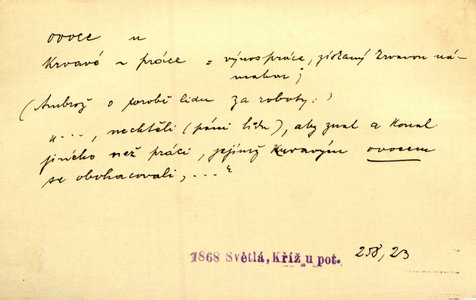 ovoce n
Krvavé ~ práce = výnos práce, získaný krvavou ná-
mahou;
(Ambrož o porobě lidu za roboty:)
"..., nechtěli (páni lidu), aby znal a konal
jiného než práci, jejímž krvavým ovocem
se obohacovali, ..."
1868 Světlá, Kříž u pot. 258, 23